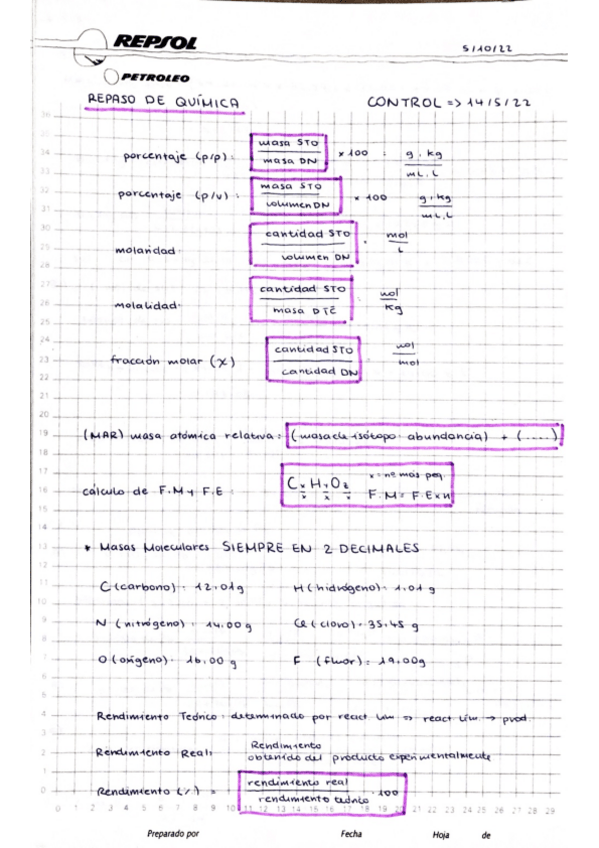 REPSOL
5/10/22
PETROLEO
REPASO DE QUÍMICA CONTROL => 14/5/22
porcentaje (p/p): masa STO / masa DN × 100 : g, kg / mL, L
porcentaje (p/v): masa STO / volumen DN × 100 g, kg / mL, L
molaridad cantidad STO / volumen DN mol / L
molalidad cantidad STO / masa DTE mol / Kg
fracción molar (X) cantidad STO / cantidad DN mol / mol
(MAR) masa atómica relativa: (masa de isótopo · abundancia) + (....)
cálculo de F.M y F.E: Cx/x Hy/x Oz/x x=nº más peq F.M = F.E × n
* Masas Moleculares SIEMPRE EN 2 DECIMALES
C (carbono): 12.01g H (hidrógeno): 1.01 g
N (nitrógeno): 14.00 g Cl (cloro): 35.45 g
O (oxígeno): 16.00 g F (fluor): 19.00g
Rendimiento Teórico: determinado por react lim => react lim. → prod.
Rendimiento Real: Rendimiento
obtenido del producto experimentalmente
Rendimiento (%) = rendimiento real / rendimiento teórico · 100
36
35
34
33
32
31
30
29
28
27
26
25
24
23
22
21
20
19
18
17
16
15
14
13
12
11
10
9
8
7
6
5
4
3
2
1
0
0 1 2 3 4 5 6 7 8 9 10 11 12 13 14 15 16 17 18 19 20 21 22 23 24 25 26 27 28 29
Preparado por Fecha Hoja de